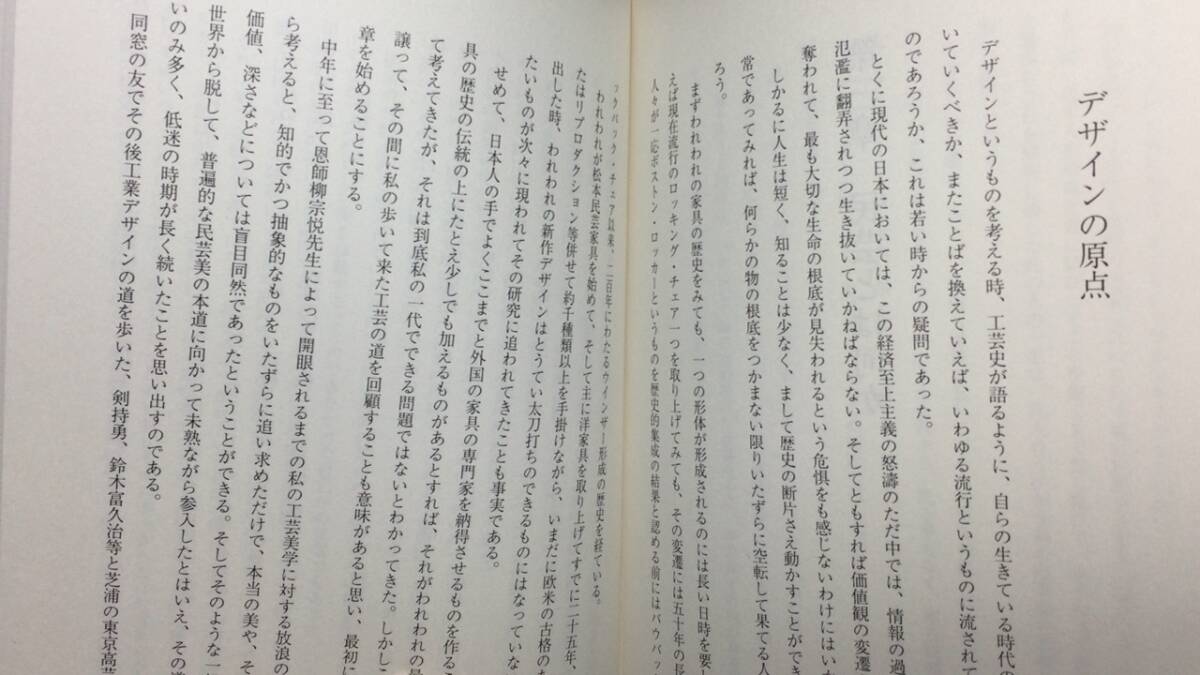 デザインの原点
デザインというものを考える時、工芸史が語るように、自らの生きている時代の
いていくべきか、またことばを換えていえば、いわゆる流行というものに流されて
のであろうか、これは若い時からの疑問であった。
とくに現代の日本においては、この経済至上主義の怒濤のただ中では、情報の過
氾濫に翻弄されつつ生き抜いていかねばならない。そしてともすれば価値観の変遷
奪われて、最も大切な生命の根底が見失われるという危惧をも感じないわけにはいか
しかるに人生は短く、知ることは少なく、まして歴史の断片さえ動かすことができ
常であってみれば、何らかの物の根底をつかまない限りいたずらに空転して果てる人
ろう。
まずわれわれの家具の歴史をみても、一つの形体が形成されるのには長い日時を要し
えば現在流行のロッキング・チェア一つを取り上げてみても、その変遷には五十年の長
人々が一応ボストン・ロッカーというものを歴史的集成の結果と認める前にはバウバッ
ックバック・チェア以来、二百年にわたるウインザー形成の歴史を経ている。
われわれが松本民芸家具を始めて、そして主に洋家具を取り上げてすでに二十五年、
たはリプロダクション等併せて約千種類以上を手掛けながら、いまだに欧米の古格のあ
出した時、われわれの新作デザインはとうてい太刀打ちのできるものにはなっていな
たいものが次々に現われてその研究に追われてきたことも事実である。
せめて、日本人の手でよくここまでと外国の家具の専門家を納得させるものを作るこ
具の歴史の伝統の上にたとえ少しでも加えるものがあるとすれば、それがわれわれの
て考えてきたが、それは到底私の一代でできる問題ではないとわかってきた。しかしこ
譲って、その間に私の歩いて来た工芸の道を回顧することも意味があると思い、最初に
章を始めることにする。
中年に至って恩師柳宗悦先生によって開眼されるまでの私の工芸美学に対する放浪の
ら考えると、知的でかつ抽象的なものをいたずらに追い求めただけで、本当の美や、そ
価値、深さなどについては盲目同然であったということができる。そしてそのような一
世界から脱して、普遍的な民芸美の本道に向かって未熟ながら参入したとはいえ、その
いのみ多く、低迷の時期が長く続いたことを思い出すのである。
同窓の友でその後工業デザインの道を歩いた、剣持勇、鈴木富久治等と芝浦の東京高